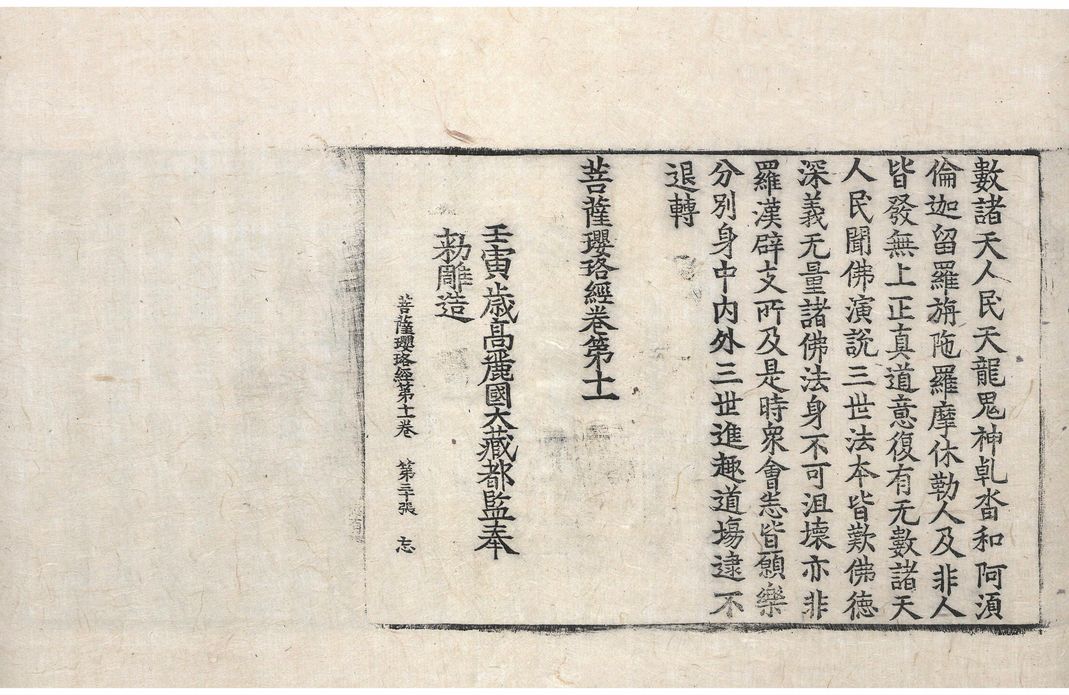 數諸天人民天龍鬼神乹沓和阿湏
倫迦留羅旃陁羅摩休勒人及非人
皆發無上正真道意復有无數諸天
人民聞佛演說三世法本皆歎佛德
深義无量諸佛法身不可沮壞亦非
羅漢辟支所及是時衆會悉皆願樂
分別身中内外三世進趣道場逮不
退轉
菩薩瓔珞經卷第十一
壬寅歲高麗國大藏都監奉
勑雕造
菩薩瓔珞經第十一卷 第三十張 忘